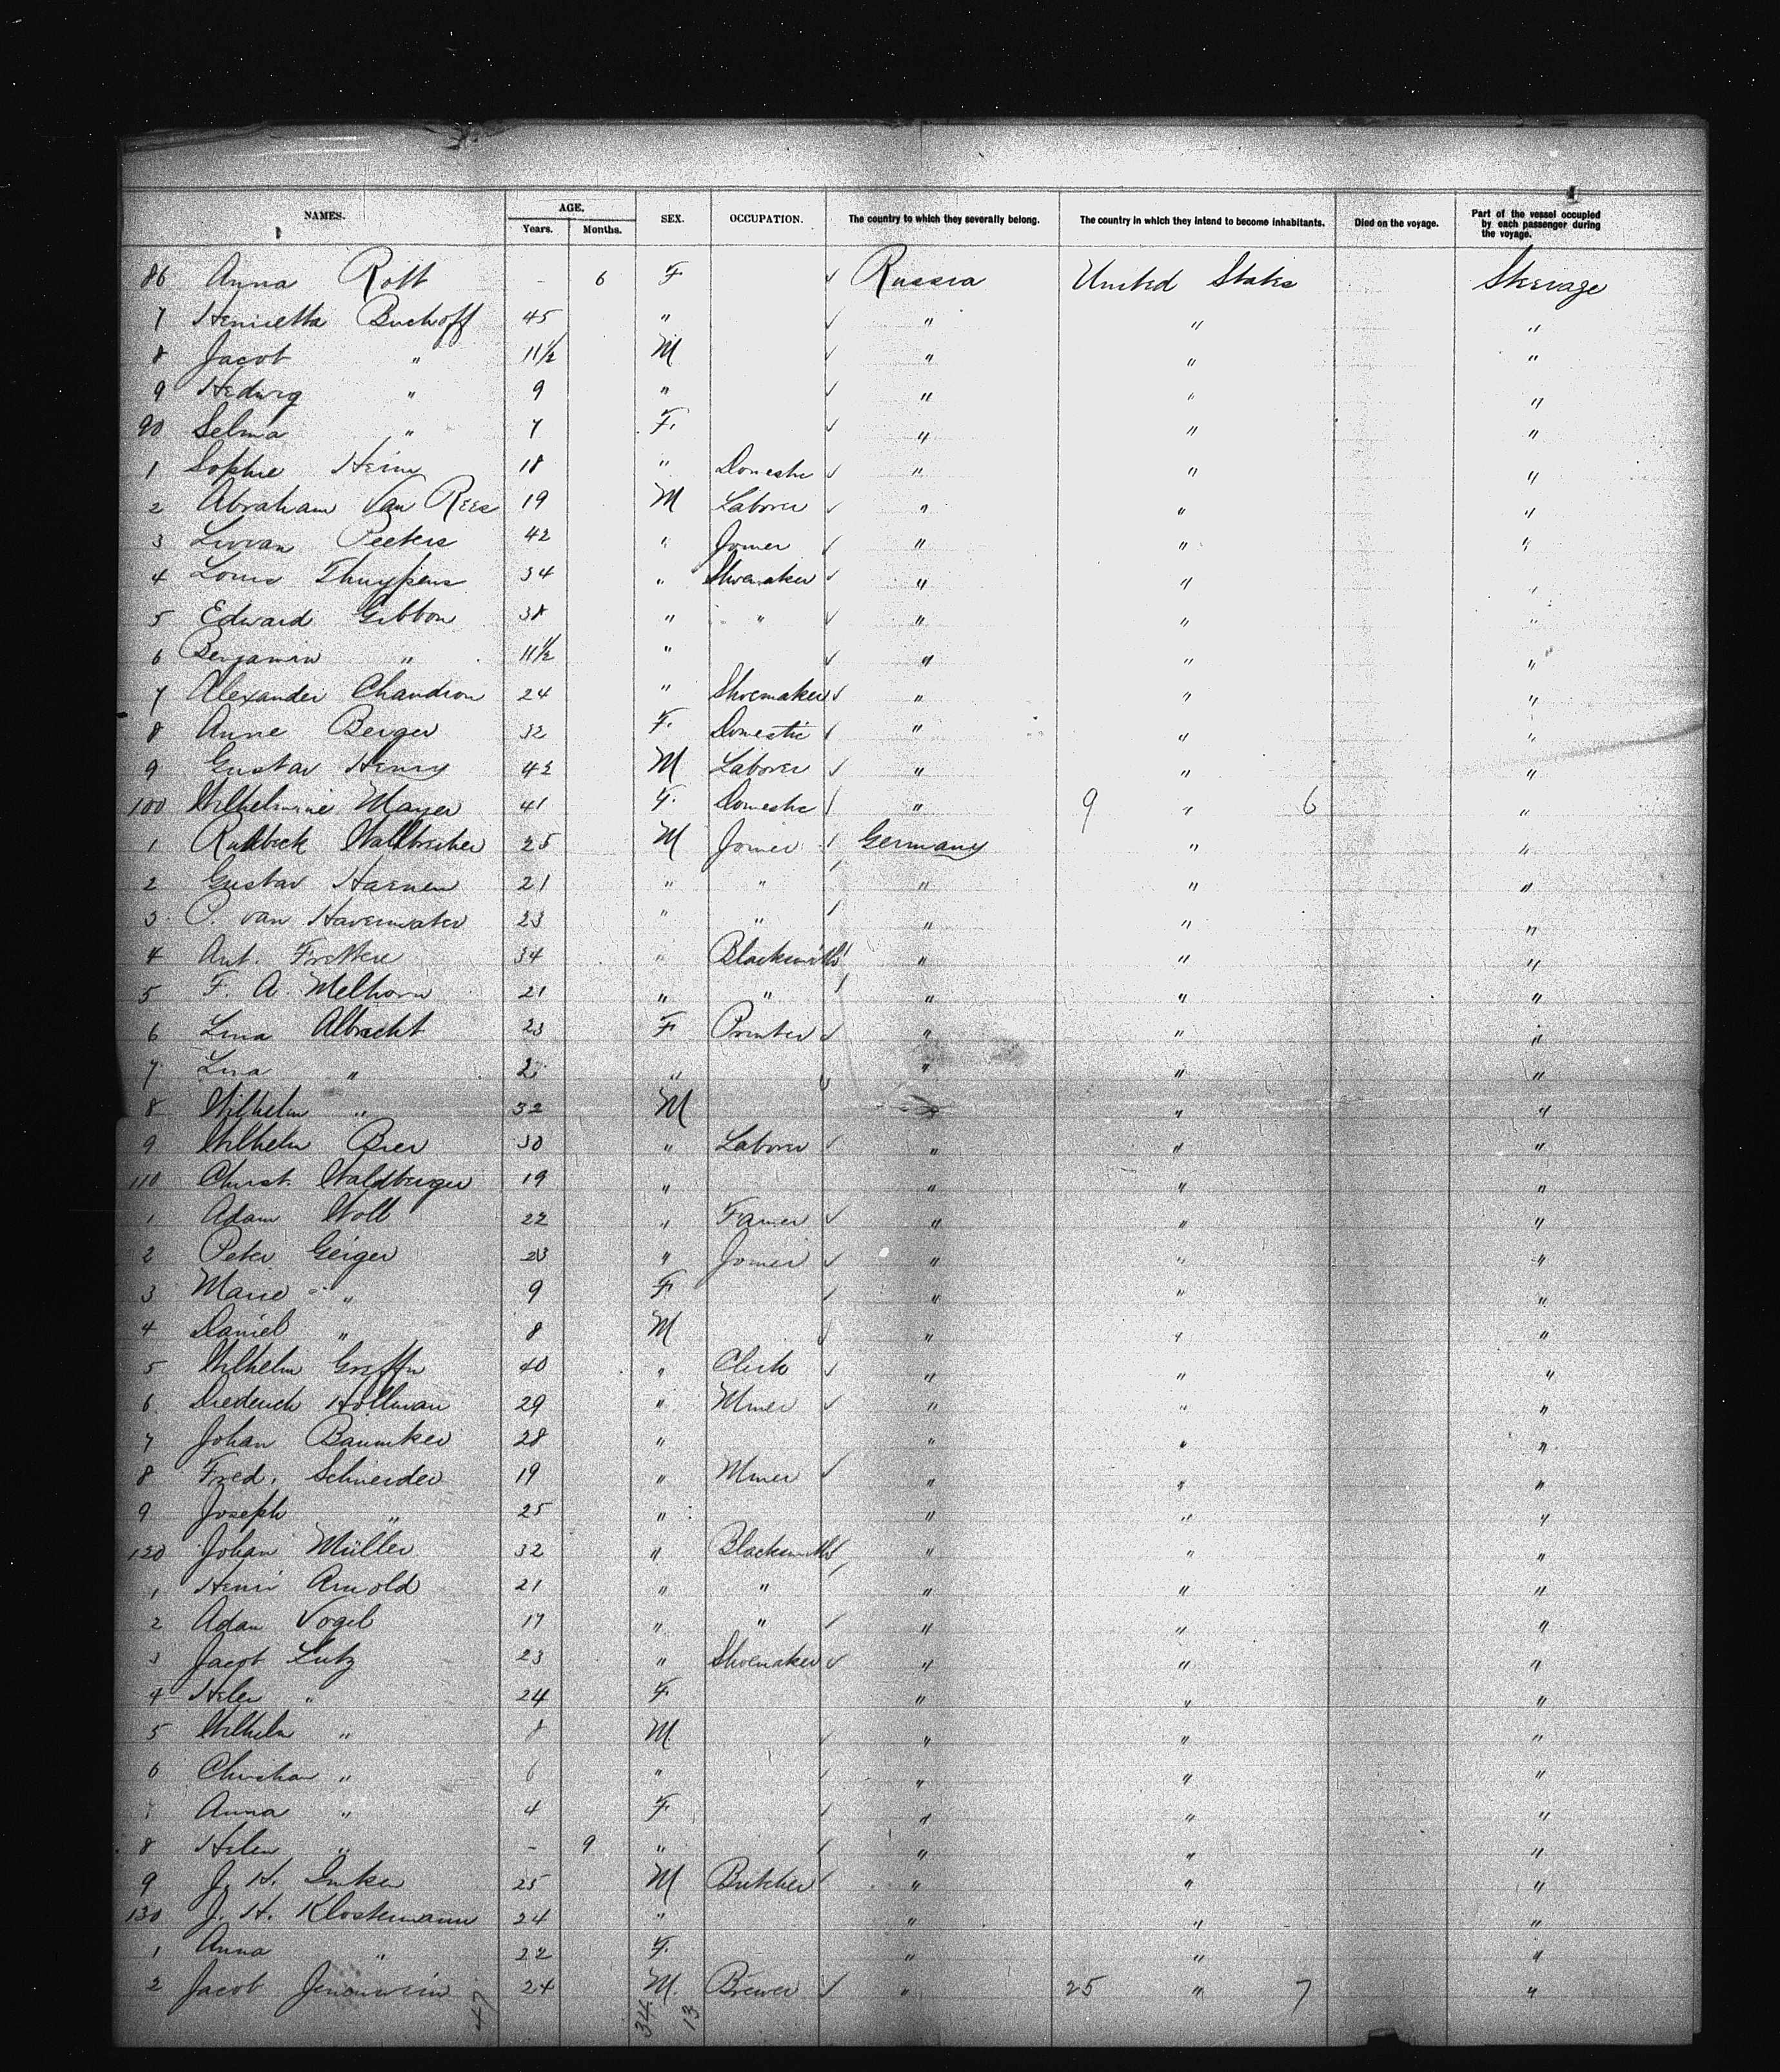 NAMES. AGE. Years. Months. SEX. OCCUPATION. The country to which they severally belong. The country in which they intend to become inhabitants. Died on the voyage. Part of the vessel occupied by each passenger during the voyage.
86 Anna Rott - 6 F Russia United States Steerage
7 Henrietta Buchoff 45 " " " "
8 Jacob " 11½ M " " "
9 Hedwig " 9 " " " "
90 Selma " 7 F. " " "
1 Sophie Heim 18 " Domestic " " "
2 Abraham Van Rees 19 M Laborer " " "
3 Livvan Peeters 42 " Joiner " " "
4 Louis Thuyssens 34 " Shoemaker " " "
5 Edward Gibbon 38 " " " " "
6 Benjamin " 11½ " " " "
7 Alexander Chandron 24 " Shoemaker " " "
8 Anne Berger 32 F. Domestic " " "
9 Gustav Henry 42 M Laborer " " "
100 Wilhelmine Mayer 41 F. Domestic " 9 " 6 "
1 Wallbrecher 25 M Joiner Germany " "
2 Gustav Haenen 21 " " " " "
3 P. van Havermater 23 " " " " "
4 Ant. 34 " Blacksmith " " "
5 F. A. Melhorn 21 " " " " "
6 Lina Albrecht 23 F Printer " " "
7 Lina " 2 " " " "
8 Wilhelm " 32 M " " "
9 Wilhelm Bier 30 " Laborer " " "
110 Christ. Waldberger 19 " " " "
1 Adam Woll 22 " Famer " " "
2 Peter Geiger 23 " Joiner " " "
3 Marie " 9 F " " "
4 Daniel " 8 M " " "
5 Wilhelm Greffin 40 " Clerk " " "
6 Diederich Hollman 29 " Miner " " "
7 Johan Baumker 28 " " " "
8 Fred. Schneider 19 " Miner " " "
9 Joseph " 25 " " " "
120 Johan Müller 32 " Blacksmith " " "
1 Henri Arnold 21 " " " " "
2 Adam Vogel 17 " " " " "
3 Jacob Lutz 23 " Shoemaker " " "
4 Helen " 24 F " " "
5 Wilhelm " 8 M. " " "
6 Christian " 6 " " " "
7 Anna " 4 F " " "
8 Helen " - 9 " " " "
9 J. H. 25 M Butcher " " "
130 J. H. Klostermann 24 " " " "
1 Anna " 22 F. " " "
2 Jacob 24 M. Brewer " 25 " 7 "
47 34 13